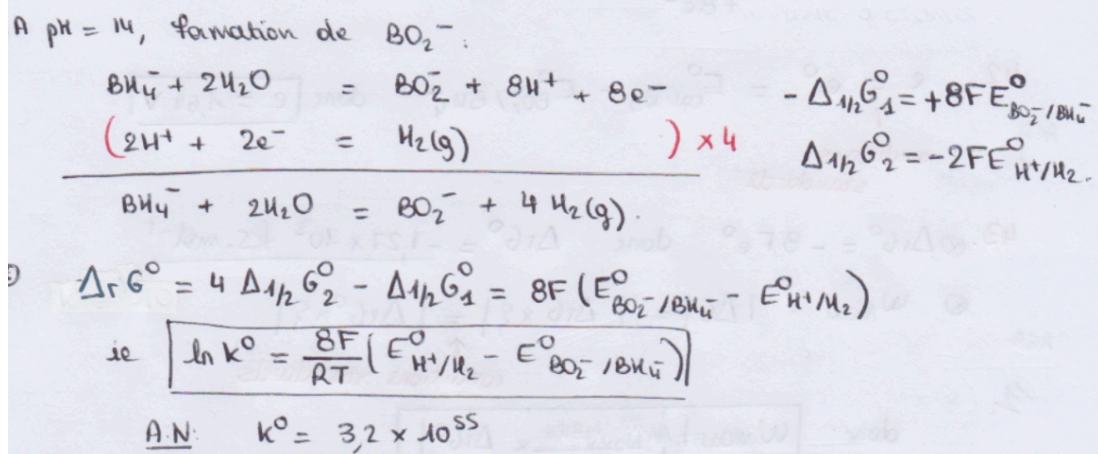 A pH = 14, formation de BO₂⁻ :
BH₄⁻ + 2H₂O = BO₂⁻ + 8H⁺ + 8e⁻ - Δ₁/₂G₁⁰ = +8FE⁰ BO₂⁻/BH₄⁻
( 2H⁺ + 2e⁻ = H₂(g) ) × 4 Δ₁/₂G₂⁰ = -2FE⁰ H⁺/H₂.
BH₄⁻ + 2H₂O = BO₂⁻ + 4 H₂(g).
ΔrG⁰ = 4 Δ₁/₂G₂⁰ - Δ₁/₂G₁⁰ = 8F (E⁰ BO₂⁻/BH₄⁻ - E⁰ H⁺/H₂)
ie ln K⁰ = 8F/RT (E⁰ H⁺/H₂ - E⁰ BO₂⁻/BH₄⁻)
A.N: K⁰ = 3,2 × 10⁵⁵